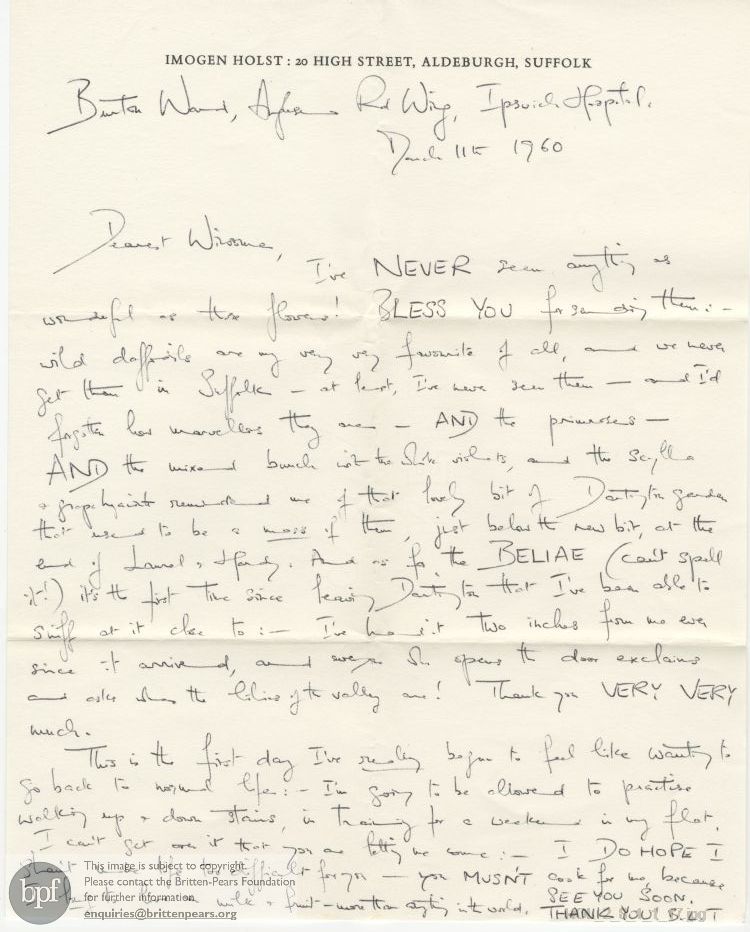 IMOGEN HOLST : 20 HIGH STREET, ALDEBURGH, SUFFOLK
Burton Ward, Anglesea Rd Wing, Ipswich Hospital.
March 11th 1960
Dearest Winsome,
I've NEVER seen anything as
wonderful as these flowers! BLESS YOU for sending them:-
wild daffodils are my very very favourite of all, and we never
get them in Suffolk - at least, I've never seen them - and I'd
forgotten how marvellous they are - AND the primroses -
AND the mixed bunch with the white violets, and the Scylla
& grapehyacinth reminded me of that lovely bit of Dartington garden
that used to be a mass of them, just below the new bit, at the
end of Laurel & Hardy. And as for the BELIAE (can't spell
it!) it's the first time since leaving Dartington that I've been able to
sniff at it close to:- I've had it two inches from me ever
since it arrived, and everyone who opens the door exclaims
and asks where the lilies of the valley are! Thank you VERY VERY
much.
This is the first day I've really begun to feel like wanting to
go back to normal life:- I'm going to be allowed to practise
walking up & down stairs, in training for a weekend in my flat.
I can't get over it that you are letting me come:- I DO HOPE I
shan't make life too difficult for you - you MUSN'T cook for me, because
milk & fruit - more than anything in the world. SEE YOU SOON.
THANK YOU! B. LOT
bpf
This image is subject to copyright.
Please contact the Britten-Pears Foundation
for further information
enquiries@brittenpears.org